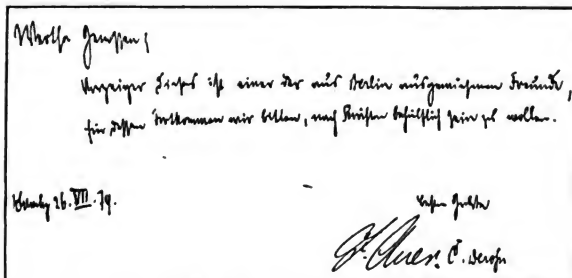 Werthe Genossen!
Vorzeiger Dieses ist einer der aus Berlin ausgewiesenen Freunde,
für dessen Fortkommen wir bitten, nach Kräften behülflich sein zu wollen.
26. VII. 79.
Besten Gruß
Auer. C. Derossi